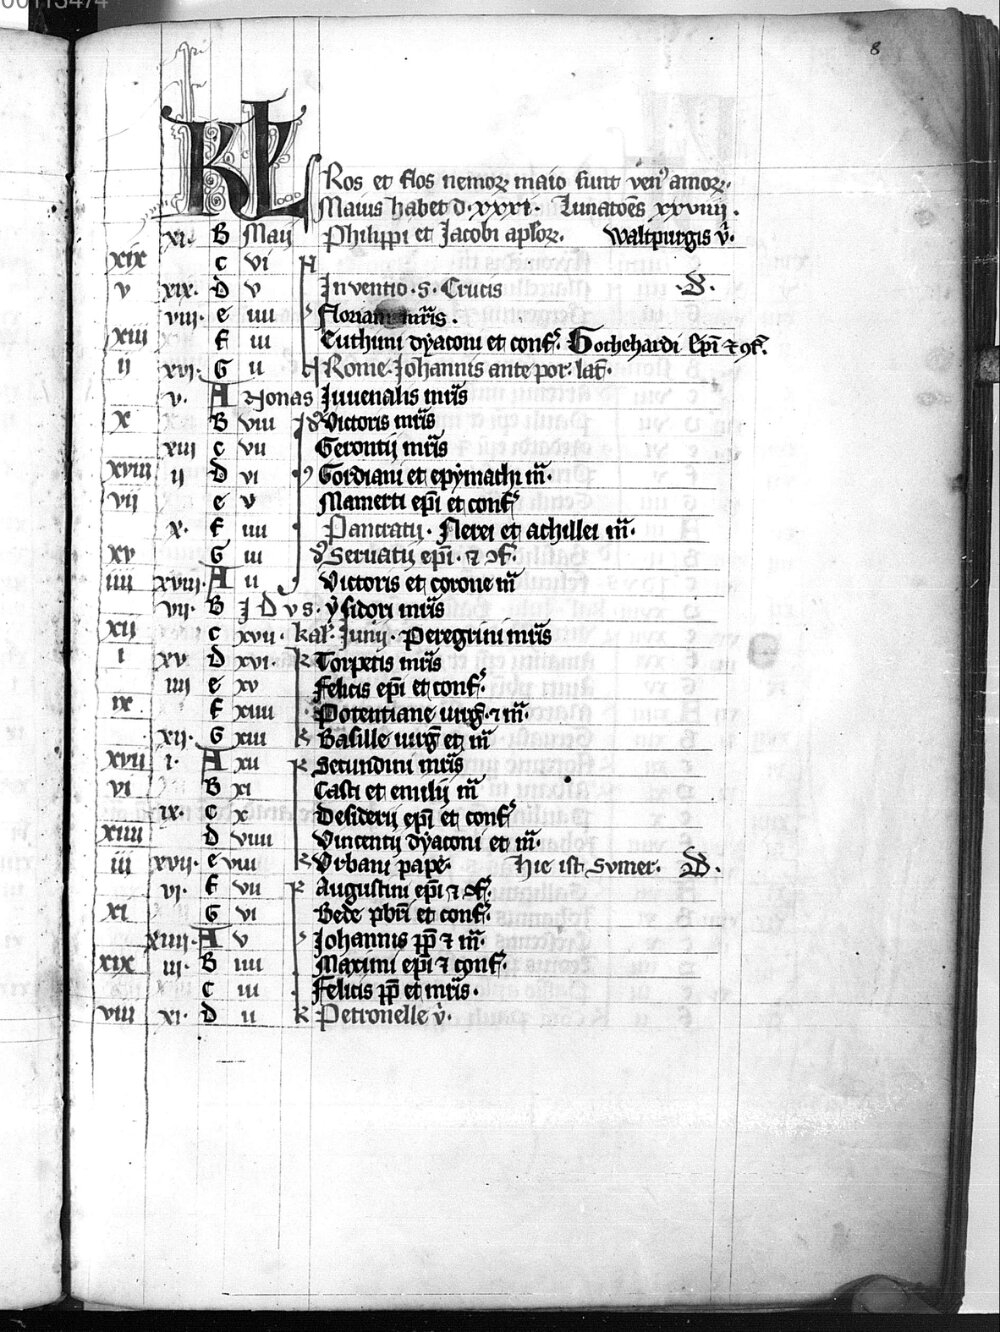 00113474
8
KL
Ros et flos nemorꝝ maio sunt venꝰ amorꝝ.
Maius habet d. xxxi. Lunatoēs xxviiii.
xi. B Maij Philippi et Jacobi aplorꝝ. waltpurgis v̊.
xix c vi N
v xix. D v Inventio. s. Crucis S.
viii. e iiii Floriani mr̄is.
xiii f iii Euthimi dyaconi et conf. Gothehardi Ep̄i ⁊ ꝯf.
ii xvi. G ii Rome. Johannis ante por. lat̄.
v. A Nonas Juuenalis mr̄is
x B viii Id Victoris mr̄is
xiii c vii Gerontij mr̄is
xviii ii D vi Gordiani et epymachi m̄.
vii e v Mamerti ep̄i et conf
x. f iiii Pancratij. Nerei et achillei m̄.
xv G iii Seruatij ep̄i. ⁊ ꝯf.
iiii xviii. A ii Victoris et corone m̄
vii. B J D v s. ysidori mr̄is
xii c xvii kal. Junij. Peregrini mr̄is
i xv D xvi. k Torpetis mr̄is
iiii e xv Felicis ep̄i et conf.
ix f xiiii Potentiane uirg. ⁊ m̄.
xii. G xiii k Basille uirg̅ et m̄
xvii i. A xii k Secundini mr̄is
vi B xi Casti et emilij m̄
ix. c x Desiderij ep̄i et conf
xiiii d viiii Vincentij dyaconi et m̄.
iii xvii. e viii k Vrbani pape. Hic ist Svmer. S.
vi. f vii k Augustini ep̄i ⁊ ꝯf.
xi G vi Bede pb̄ri et conf.
xiiii. A v Johannis pp̄ ⁊ m̄.
xix iii. B iiii Maximi ep̄i ⁊ conf.
c iii Felicis pp̄ et mr̄is.
viii xi. D ii k Petronelle v̊.